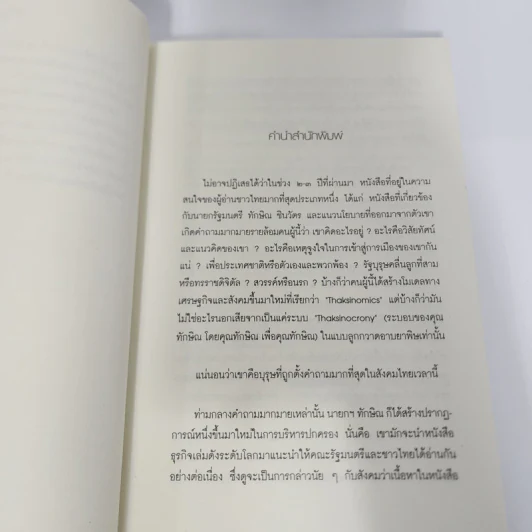 คำนำสำนักพิมพ์
ไม่อาจปฏิเสธได้ว่าในช่วง ๒-๓ ปีที่ผ่านมา หนังสือที่อยู่ในความ
สนใจของผู้อ่านชาวไทยมากที่สุดประเภทหนึ่ง ได้แก่ หนังสือที่เกี่ยวข้อง
กับนายกรัฐมนตรี ทักษิณ ชินวัตร และแนวนโยบายที่ออกมาจากตัวเขา
เกิดคำถามมากมายรายล้อมคนผู้นี้ว่า เขาคิดอะไรอยู่ ? อะไรคือวิสัยทัศน์
และแนวคิดของเขา ? อะไรคือเหตุจูงใจในการเข้าสู่การเมืองของเขากัน
แน่ ? เพื่อประเทศชาติหรือตัวเองและพวกพ้อง ? รัฐบุรุษคลื่นลูกที่สาม
หรือทรราชดิจิตัล ? สวรรค์หรือนรก ? บ้างก็ว่าคนผู้นี้ได้สร้างโมเดลทาง
เศรษฐกิจและสังคมขึ้นมาใหม่ที่เรียกว่า "Thaksinomics" แต่บ้างก็ว่ามัน
ไม่ใช่อะไรนอกเสียจากเป็นแค่ระบบ "Thaksinocrony" (ระบอบของคุณ
ทักษิณ โดยคุณทักษิณ เพื่อคุณทักษิณ) ในแบบลูกกวาดอาบยาพิษเท่านั้น
แน่นอนว่าเขาคือบุรุษที่ถูกตั้งคำถามมากที่สุดในสังคมไทยเวลานี้
ท่ามกลางคำถามมากมายเหล่านั้น นายกฯ ทักษิณ ก็ได้สร้างปรากฏ-
การณ์หนึ่งขึ้นมาใหม่ในการบริหารปกครอง นั่นคือ เขามักจะนำหนังสือ
ธุรกิจเล่มดังระดับโลกมาแนะนำให้คณะรัฐมนตรีและชาวไทยได้อ่านกัน
อย่างต่อเนื่อง ซึ่งดูจะเป็นการกล่าวนัย ๆ กับสังคมว่าเนื้อหาในหนังสือ